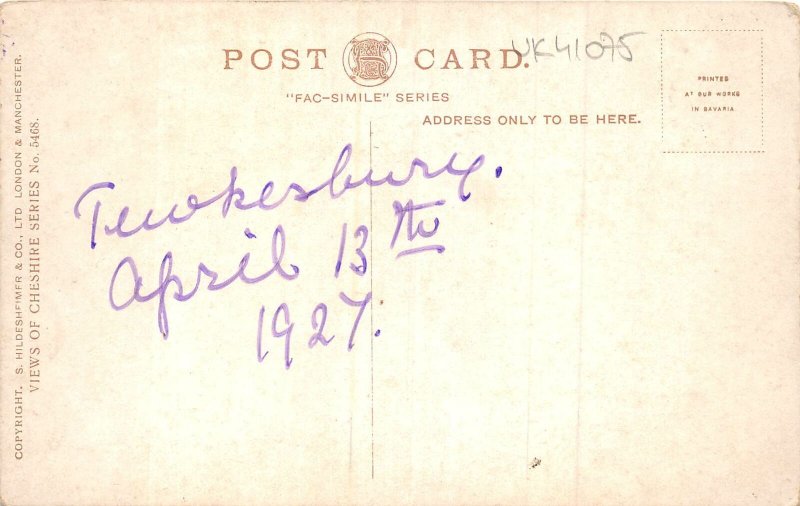 POST CARD.
UK41075
"FAC-SIMILE" SERIES
ADDRESS ONLY TO BE HERE.
PRINTED
AT OUR WORKS
IN BAVARIA
Tewkesbury.
April 13th
1927.
COPYRIGHT. S. HILDESHEIMER & CO., LTD LONDON & MANCHESTER.
VIEWS OF CHESHIRE SERIES No. 5468.